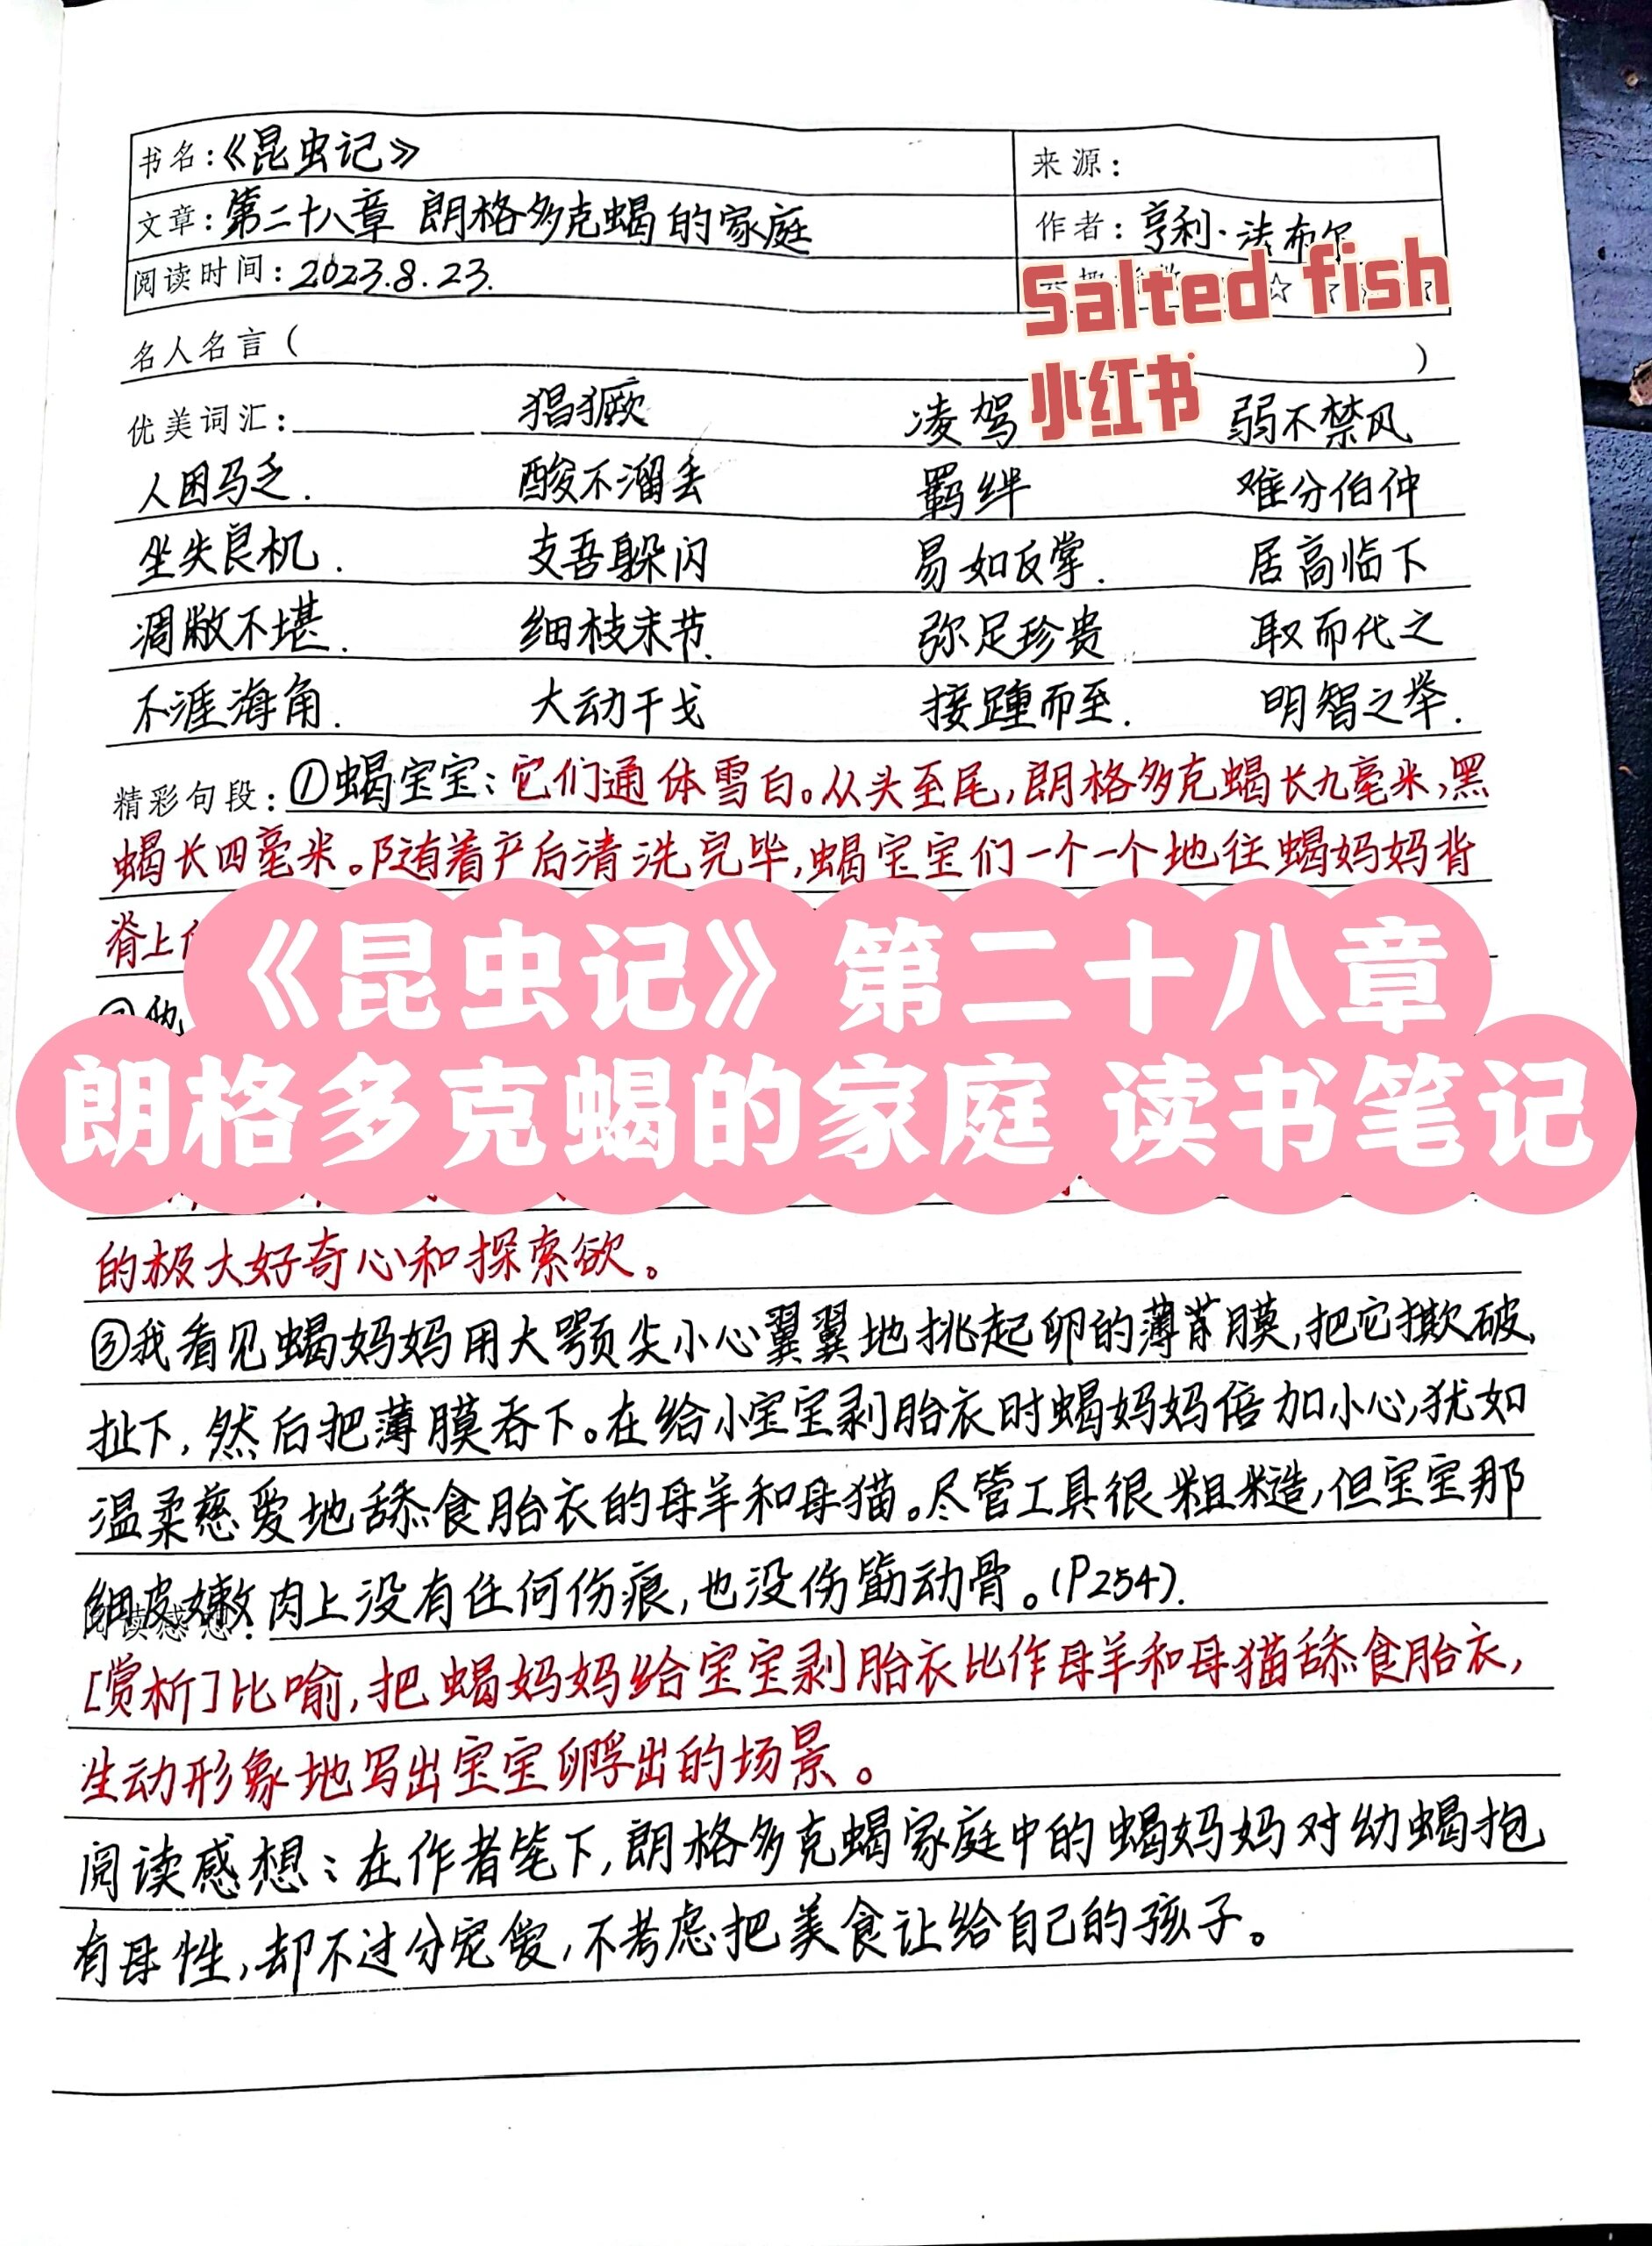 书名:《昆虫记》
来源:
文章:第二十八章 朗格多克蝎的家庭
作者:亨利·法布尔
阅读时间:2023.8.23.
Salted fish
小红书
名人名言( )
优美词汇: 猖獗 凌驾 弱不禁风
人困马乏. 酸不溜丢 羁绊 难分伯仲
坐失良机. 支吾躲闪 易如反掌. 居高临下
凋敝不堪. 细枝末节. 弥足珍贵 取而代之
不涯海角. 大动干戈 接踵而至. 明智之举.
精彩句段:①蝎宝宝:它们通体雪白。从头至尾,朗格多克蝎长九毫米,黑
蝎长四毫米。随着产后清洗完毕,蝎宝宝们一个一个地往蝎妈妈背
脊上
《昆虫记》第二十八章
朗格多克蝎的家庭 读书笔记
的极大好奇心和探索欲。
③我看见蝎妈妈用大颚尖小心翼翼地挑起卵的薄膜,把它撕破、
扯下,然后把薄膜吞下。在给小宝宝剥胎衣时蝎妈妈倍加小心,犹如
温柔慈爱地舔食胎衣的母羊和母猫。尽管工具很粗糙,但宝宝那
细皮嫩肉上没有任何伤痕,也没伤筋动骨。(P254).
阅读感想:
[赏析]比喻,把蝎妈妈给宝宝剥胎衣比作母羊和母猫舔食胎衣,
生动形象地写出宝宝孵出的场景。
阅读感想:在作者笔下,朗格多克蝎家庭中的蝎妈妈对幼蝎抱
有母性,却不过分宠爱,不考虑把美食让给自己的孩子。